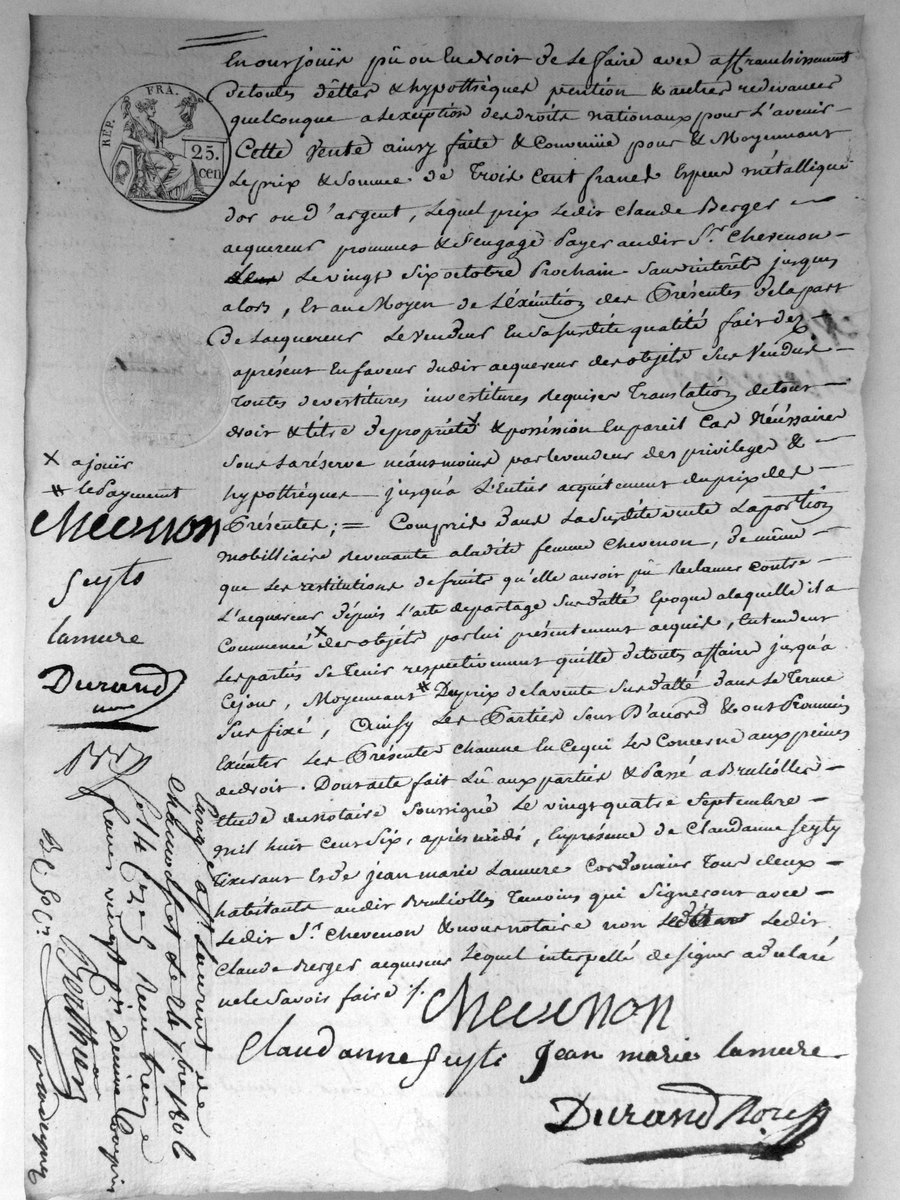 REP. FRA.
25.
cen
en ont jouir pû ou eu droit de le faire avec affranchissement
de toutes dêttes & hypothèques pention & autres redevances
quelconque a lexeption des droits nationaux pour l'avenir
Cette vente ainsy faite & convenüe pour & Moyennant
le prix & somme de Trois cent francs Espece métallique
dor ou d'argent, lequel prix ledit Claude Berger
acquereur promet & s'engage payer audit Sr. Chevenon
le vingt six octobre prochain sans interêt jusques
alors, Et au Moyen de L'éxécution des Présentes de la part
de Lacquereur Le vendeur En sa susdite qualité fait des
aprésent En faveur dudit acquereur des objets sus vendus
toutes devestitures investitures requises Translation de tout
droit & titre de proprieté & possission En pareil Cas Nécéssaires
sous la réserve néansmoins par le vendeur des privileges &
hypothéques jusqu'à L'Entier acquitement du prix des
Présentes; = Compris dans La susdite vente La portion
mobilliaire revenante a ladite femme Chevenon, de même
que les restitutions de fruits qu'elle auroit pû reclamer contre
L'acquereur depuis l'acte de partage sus datté Epoque a laquelle il a
Commencé x des objets par lui présentement acquis, Entendent
les partis se tenir respectivement quitte de toutes affaire jusqu'à
Cejour, Moyennant # Du prix de la vente sus datté dans le Terme
sus fixé, Ainsy les Parties sont D'acord & ont Promis
Exécuter les Présente chacune En ce qui les Concerne aux peines
de droit. Dont acte fait Lû aux parties & Passé a Brulioles
Etude du notaire soussigné Le vingt quatre septembre
mil huit Cent Six, après midi, En presence de Claudanne Seyty
tixerant Et de jean marie Lamure Cordonnier tous deux
habitants audit Brulioles Temoins qui signeront avec
ledit Sr. Chevenon & nous notaire non ledit
Claude Berger acquereur Lequel interpellé de signer a declaré
ne le savoir faire ./.
Chevenon
Claudanne Seyti jean marie lamure
Durand Nore
x a jouir
# le payement
Chevenon
Seyti
lamure
Durand
Enrg. a St. Laurent de
Chamousset le 26 7bre 1806
fo 14
francs vingt six